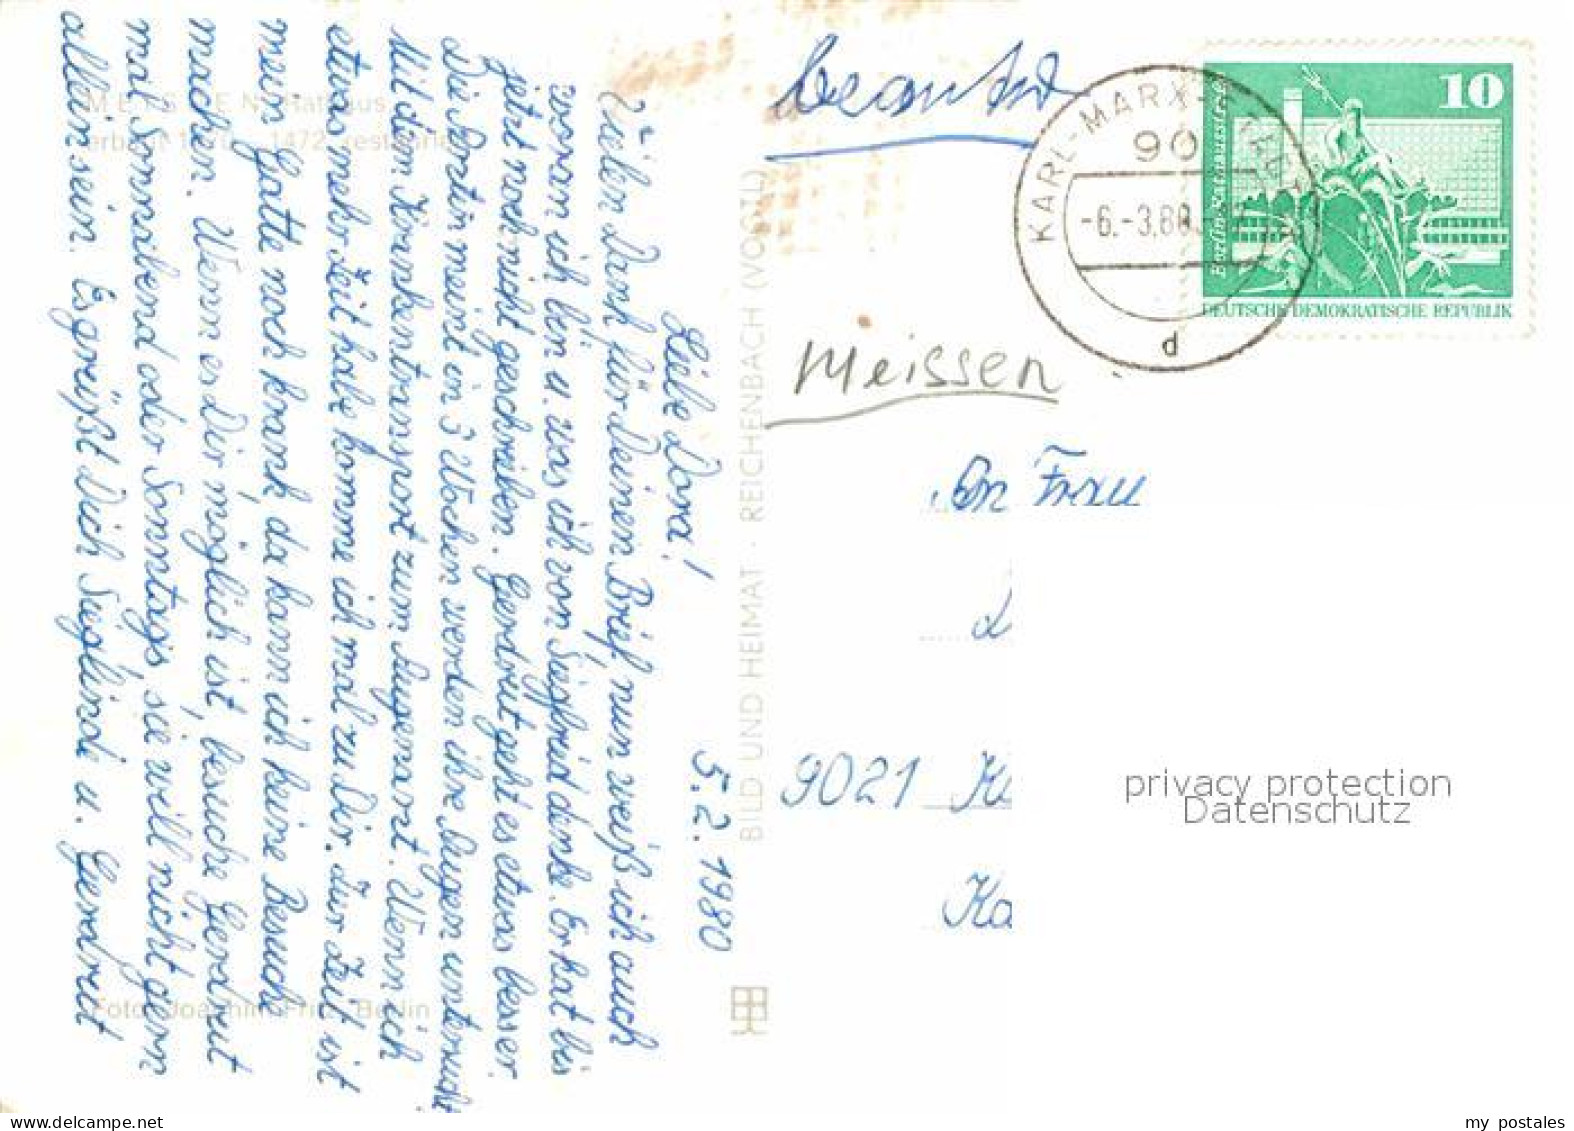 Liebe Dora!
5.2.1980
Vielen Dank für Deinen Brief, nun weiß ich auch
woran ich bin u. was ich von Siegfried denke. Er hat bis
jetzt noch nicht geschrieben. Gerdraut geht es etwas besser.
Die Ärztin meint in 3 Wochen werden ihre Augen untersucht.
Mit dem Krankentransport zum Augenarzt. Wenn ich
etwas mehr Zeit habe komme ich mal zu Dir. Zur Zeit ist
mein Gatte noch krank, da kann ich keine Besuche
machen. Wenn es Dir möglich ist, besuche Gerdraut
mal Sonnabend oder Sonntags, sie will nicht gern
allein sein. Es grüßt Dich Sieglinde u. Gerdraut
MEISSEN, Rathaus
erbaut 1470 - 1472,
Foto: Joachim Fritz, Berlin
BILD UND HEIMAT · REICHENBACH (VOGTL)
beantw
10
Berlin-Rathausstraße
DEUTSCHE DEMOKRATISCHE REPUBLIK
KARL-MARX-STADT
90
-6.-3.80
d
Meissen
An Frau
9021 K
Ka
privacy protection
Datenschutz
my postales